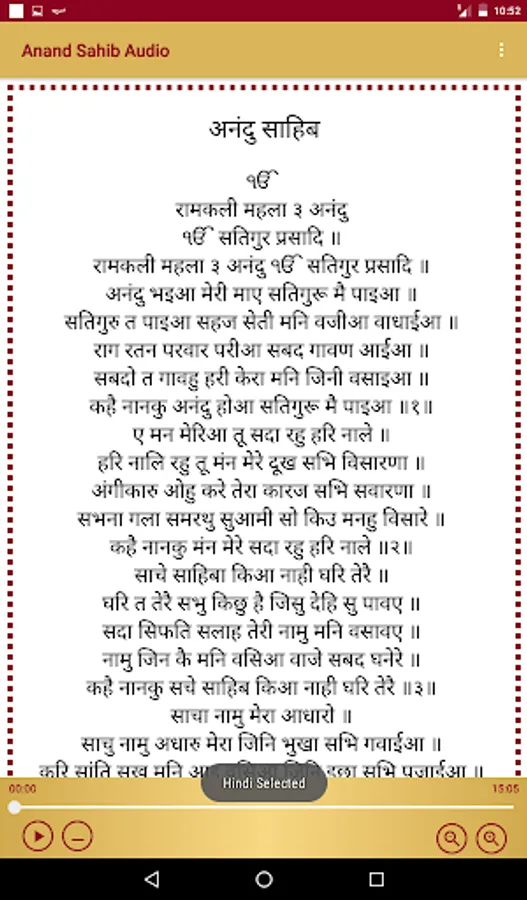 10:52
Anand Sahib Audio
अनंदु साहिब
ੴ
रामकली महला ३ अनंदु
ੴ सतिगुर प्रसादि ॥
रामकली महला ३ अनंदु ੴ सतिगुर प्रसादि ॥
अनंदु भइआ मेरी माए सतिगुरू मै पाइआ ॥
सतिगुरु त पाइआ सहज सेती मनि वजीआ वाधाईआ ॥
राग रतन परवार परीआ सबद गावण आईआ ॥
सबदो त गावहु हरी केरा मनि जिनी वसाइआ ॥
कहै नानकु अनंदु होआ सतिगुरू मै पाइआ ॥१॥
ए मन मेरिआ तू सदा रहु हरि नाले ॥
हरि नालि रहु तू मंन मेरे दूख सभि विसारणा ॥
अंगीकारु ओहु करे तेरा कारज सभि सवारणा ॥
सभना गला समरथु सुआमी सो किउ मनहु विसारे ॥
कहै नानकु मंन मेरे सदा रहु हरि नाले ॥२॥
साचे साहिबा किआ नाही घरि तेरै ॥
घरि त तेरै सभु किछु है जिसु देहि सु पावए ॥
सदा सिफति सलाह तेरी नामु मनि वसावए ॥
नामु जिन कै मनि वसिआ वाजे सबद घनेरे ॥
कहै नानकु सचे साहिब किआ नाही घरि तेरै ॥३॥
साचा नामु मेरा आधारो ॥
साचु नामु अधारु मेरा जिनि भुखा सभि गवाईआ ॥
करि सांति सुख मनि जिनि इछा सभि पुजाईआ ॥
Hindi Selected
00:00
15:05